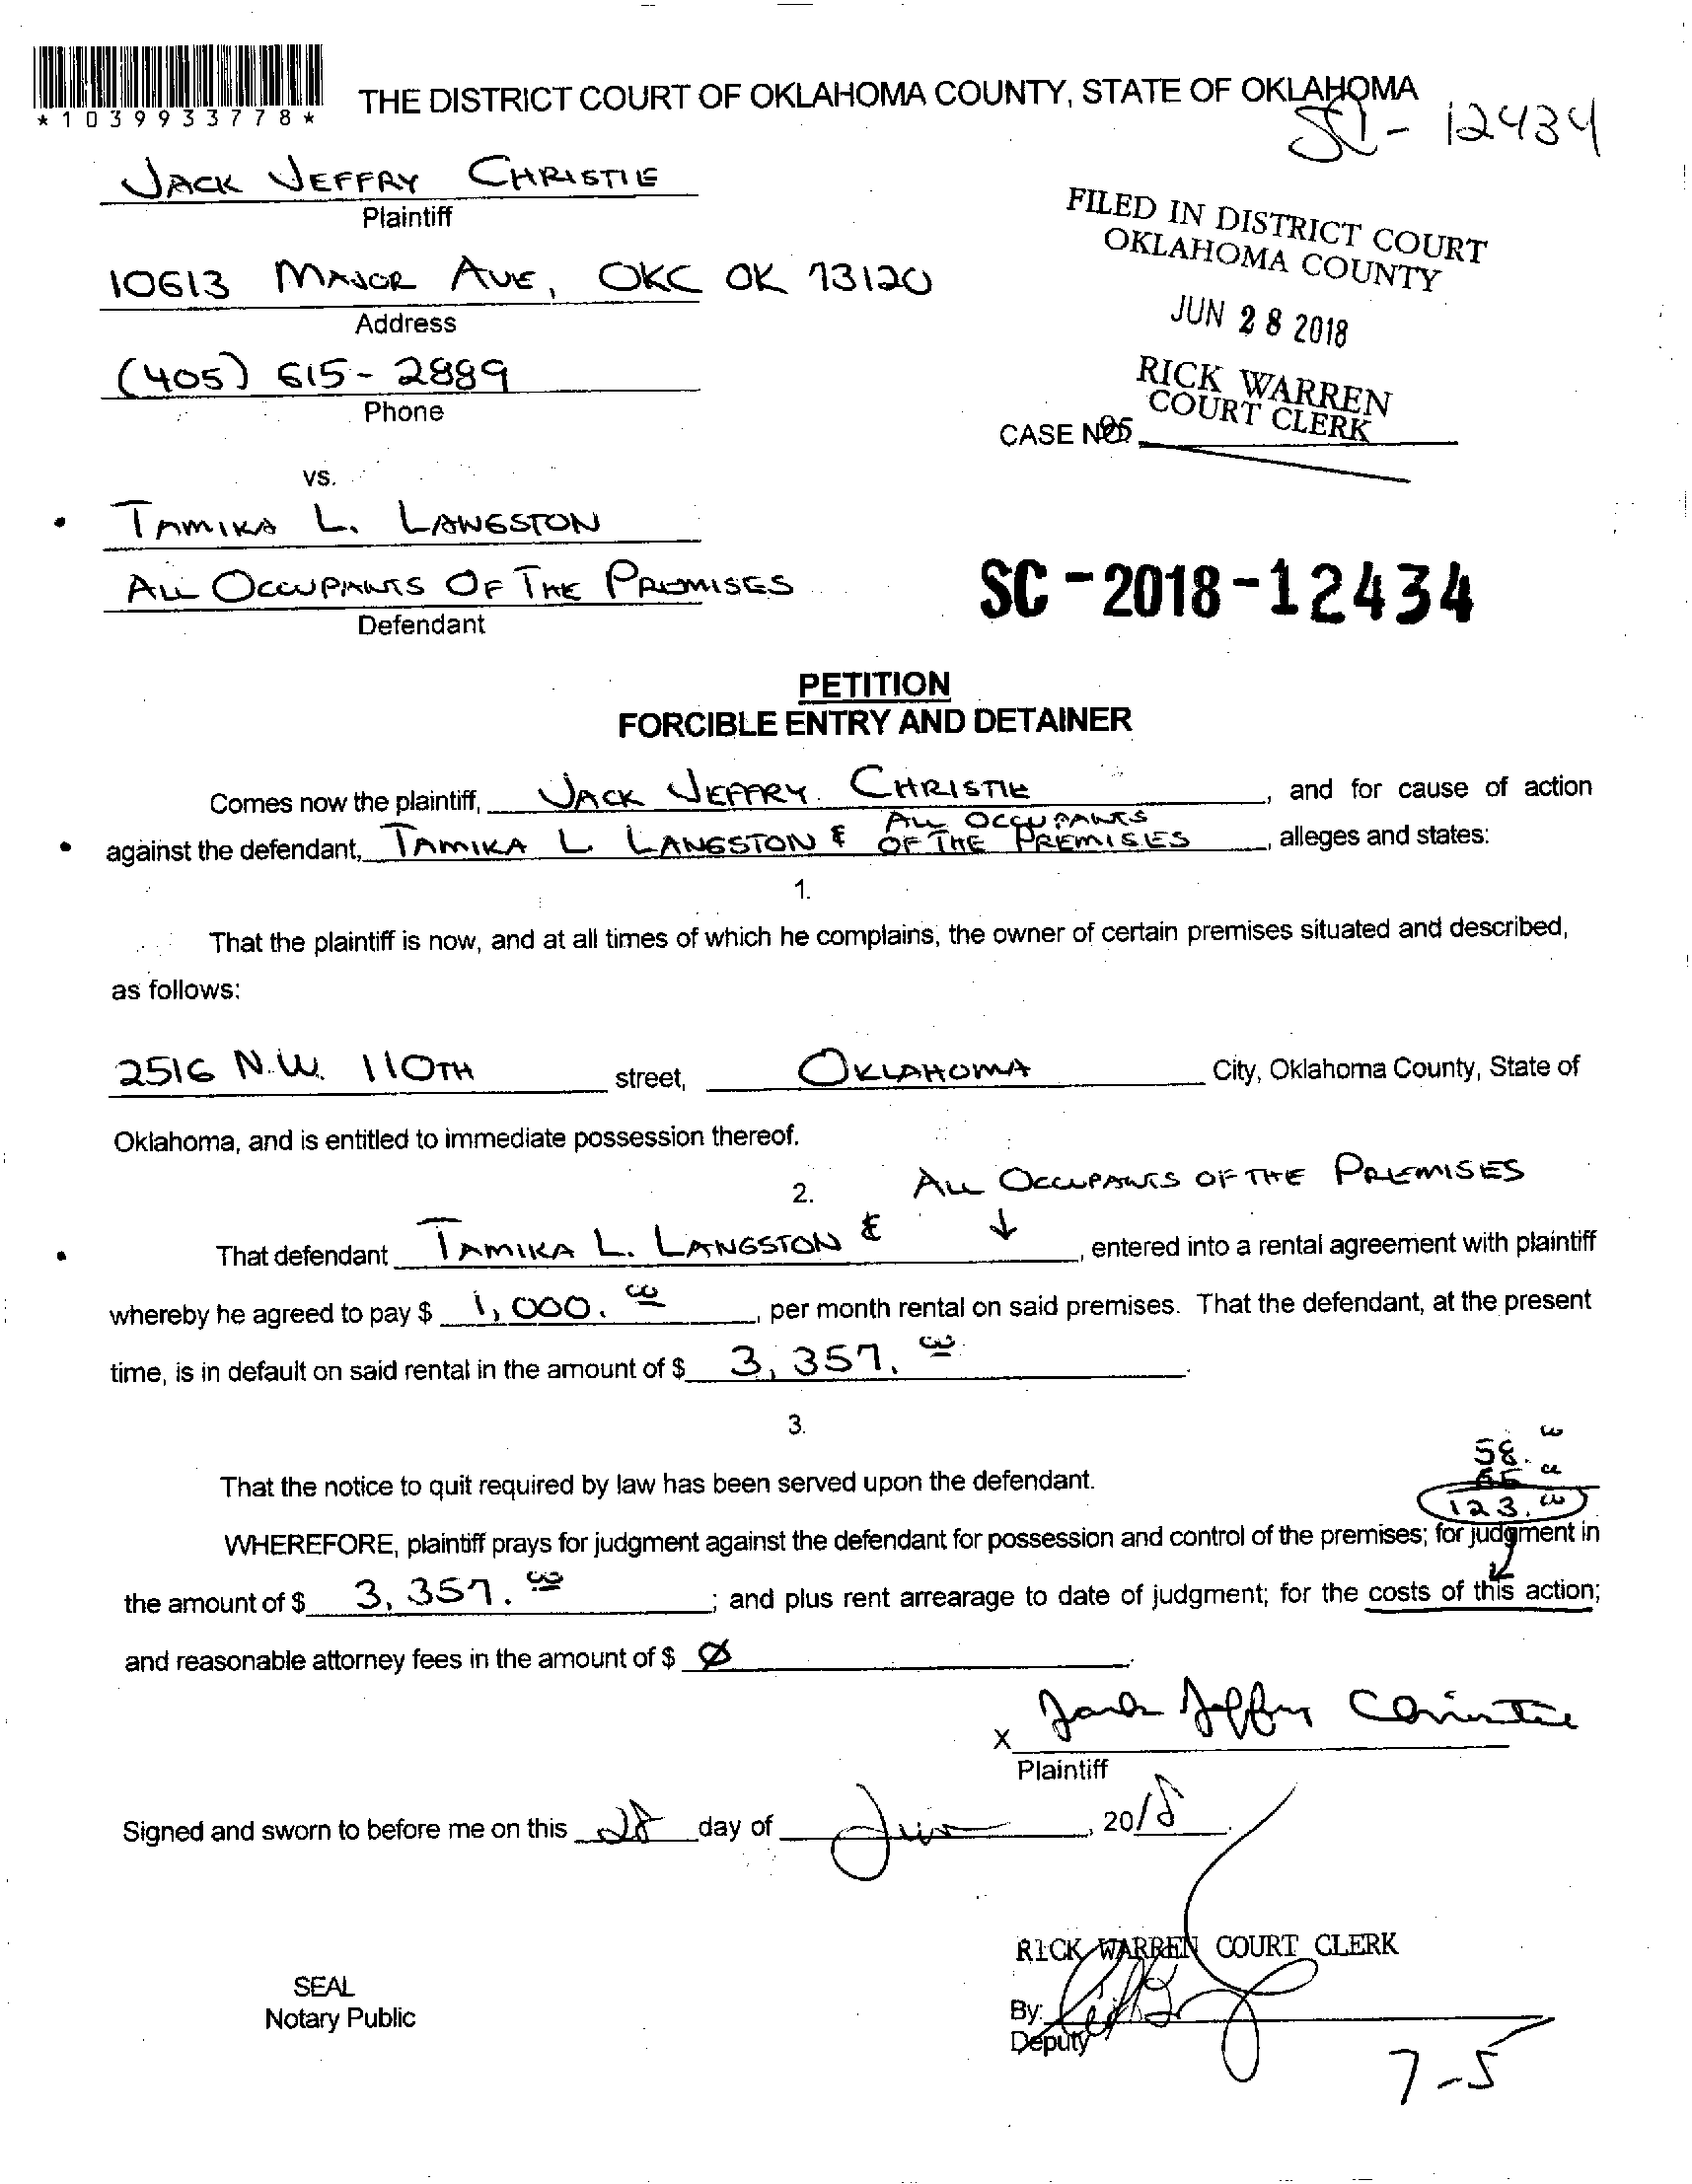 *1039933778*
THE DISTRICT COURT OF OKLAHOMA COUNTY, STATE OF OKLAHOMA
SC- 12434
JACK JEFFRY CHRISTIE
Plaintiff
10613 MAJOR AVE, OKC OK 73120
Address
(405) 615-2889
Phone
FILED IN DISTRICT COURT
OKLAHOMA COUNTY
JUN 28 2018
RICK WARREN
COURT CLERK
CASE NO.
vs.
TAMIKA L. LANGSTON
ALL OCCUPANTS OF THE PREMISES
Defendant
SC-2018-12434
PETITION
FORCIBLE ENTRY AND DETAINER
Comes now the plaintiff, JACK JEFFRY CHRISTIE, and for cause of action
against the defendant, TAMIKA L LANGSTON & ALL OCCUPANTS OF THE PREMISES, alleges and states:
1.
That the plaintiff is now, and at all times of which he complains, the owner of certain premises situated and described,
as follows:
2516 N.W. 110TH street, OKLAHOMA City, Oklahoma County, State of
Oklahoma, and is entitled to immediate possession thereof.
2.
ALL OCCUPANTS OF THE PREMISES
That defendant TAMIKA L. LANGSTON & , entered into a rental agreement with plaintiff
whereby he agreed to pay $ 1,000.00, per month rental on said premises. That the defendant, at the present
time, is in default on said rental in the amount of $ 3,357.00.
3.
58.00
123.00
That the notice to quit required by law has been served upon the defendant.
WHEREFORE, plaintiff prays for judgment against the defendant for possession and control of the premises; for judgment in
the amount of $ 3,357.00; and plus rent arrearage to date of judgment; for the costs of this action;
and reasonable attorney fees in the amount of $ Ø.
X Jack Jeffry Christie
Plaintiff
Signed and sworn to before me on this 28 day of Jun, 2018.
RICK WARREN COURT CLERK
SEAL
Notary Public
By:
Deputy
7-5